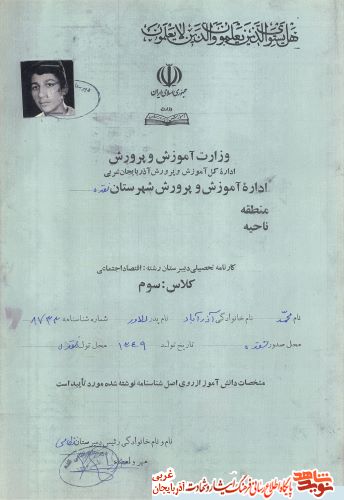 هل یستوی الذین یعلمون والذین لا یعلمون
جمهوری اسلامی ایران
وزارت
وزارت آموزش و پرورش
ادارهٔ کل آموزش و پرورش آذربایجان غربی
ادارهٔ آموزش و پرورش شهرستان نقده
منطقه
ناحیه
کارنامه تحصیلی دبیرستان رشته: اقتصاد اجتماعی
کلاس: سوم
نام محمد نام خانوادگی آذرآباد نام پدر شماره شناسنامه ۸۷۳۳
محل صدور نقده تاریخ تولد ۱۳۴۹ محل تولد نقده
مشخصات دانش آموز از روی اصل شناسنامه نوشته شده مورد تأیید است
نام و نام خانوادگی رئیس دبیرستان نظامی
مهر و امضاء
نوید شاهد
پایگاه اطلاع رسانی فرهنگ ایثار و شهادت آذربایجان غربی